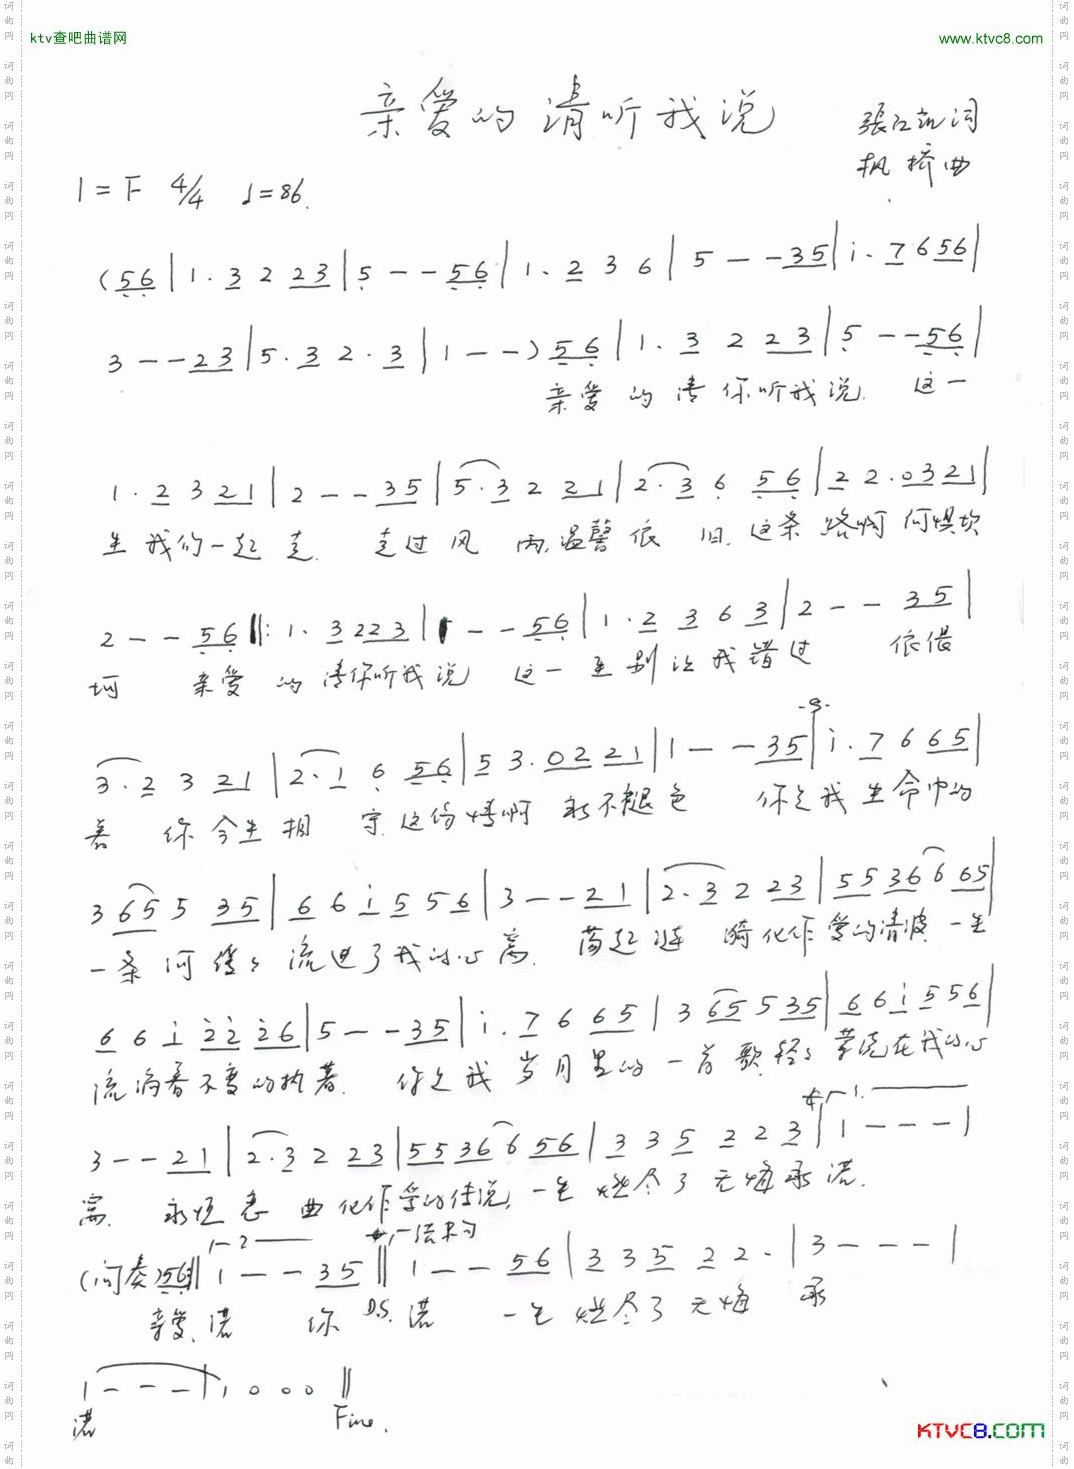 ktv查吧曲谱网
www.ktvc8.com
亲爱的请听我说
張江凯词
枫桥曲
1=F 4/4 ♩=86
(56|1·3223|5--56|1·236|5--35|i·7656|
3--23|5·32·3|1--)56|1·3223|5--56|
亲爱的请你听我说 这一
1·2321|2--35|5·3221|2·3656|22·0321|
生我们一起走 走过风雨,温馨依旧 这条路啊何惧坎
2--56‖:1·3223|5--56|1·2363|2--35|
坷 亲爱的请你听我说 这一生别让我错过 依偎
3·2321|2·1656|53·02221|1--35|i·7665|
着你今生相守 这份情啊永不褪色 你是我生命中的
365535|66i556|3--21|2·3223|5536665|
一条河 流进了我的心窝 荡起涟漪化作爱的清波 一生
66i2i26|5--35|i·7665|365535|66i556|
流淌着不变的执著 你是我岁月里的一首歌 轻轻萦绕在我的心
3--21|2·3223|5536656|335223|1---|
窝 永恒恋曲化作爱的传说 一生燃尽了无悔承诺
(间奏)56‖1--35‖1--56|33522·|3---|
亲爱 诺 你 D.S. 诺 一生燃尽了无悔 承
1---|1000‖
诺 Fine.
KTVC8.COM